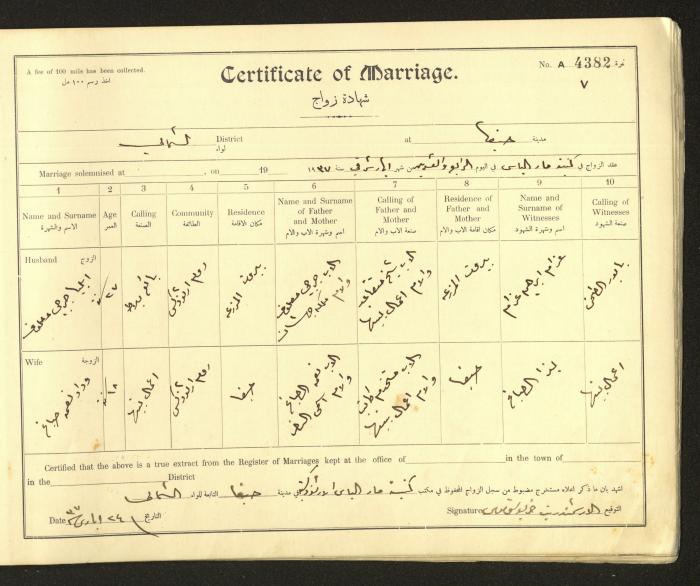 A fee of 100 mils has been collected.
أخذ رسم ١٠٠ مل
Certificate of Marriage.
No. A 4382 نمرة
٧
شهادة زواج
الشمالي District at حيفا مدينة
لواء
Marriage solemnised at , on 19 عقد الزواج في كنيسة مار الياس في اليوم الرابع والعشرين من شهر سنة ١٩٣٧
1 2 3 4 5 6 7 8 9 10
Name and Surname Age Calling Community Residence Name and Surname of Father and Mother Calling of Father and Mother Residence of Father and Mother Name and Surname of Witnesses Calling of Witnesses
الاسم والشهرة العمر الصنعة الطائفة مكان الاقامة اسم وشهرة الاب والام صنعة الاب والام مكان اقامة الاب والام اسم وشهرة الشهود صنعة الشهود
Husband الزوج
ايليا جرجي معلوف ٢٧ روم ارثوذكس بيروت المزرعة الاب جرجي معلوف والام بيروت المزرعة
Wife الزوجة
وداد نعمه صباغ ١٨ اعمال بيتها روم ارثوذكس حيفا الاب نعمه الصباغ والام والام اعمال بيتها حيفا الصباغ اعمال بيتها
Certified that the above is a true extract from the Register of Marriages kept at the office of in the town of
in the District
اشهد بان ما ذكر اعلاه مستخرج مضبوط من سجل الزواج المحفوظ في مكتب كنيسة مار الياس الارثوذكسية في مدينة حيفا التابعة للواء الشمالي
Date ٢٤ ٩٣٧ التاريخ Signature التوقيع